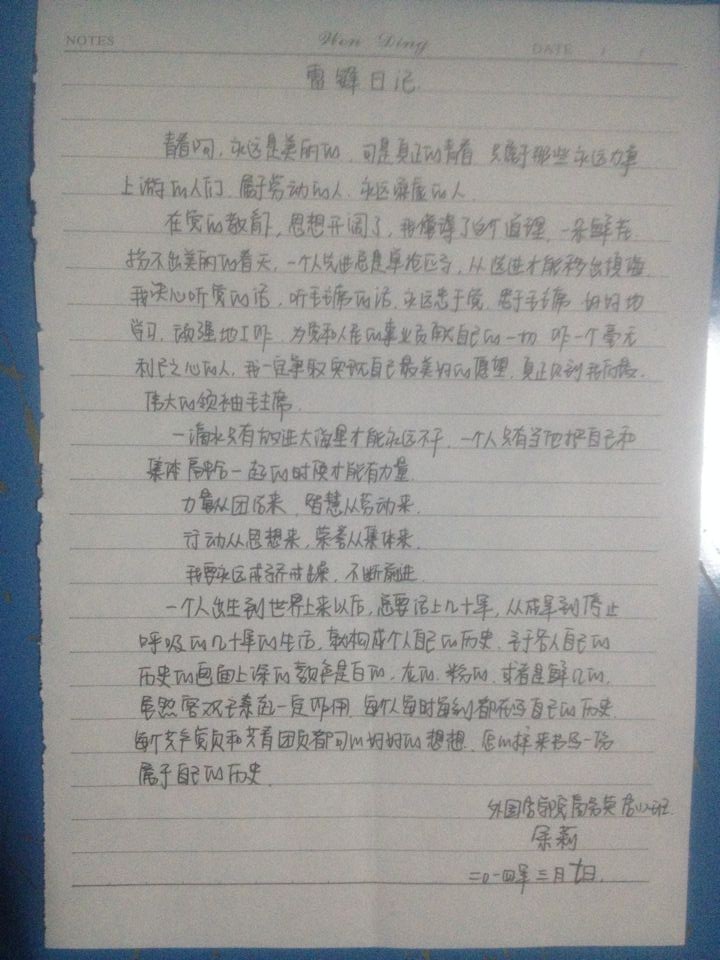 NOTES
Wen Ding
DATE / /
雷锋日记
青春啊,永远是美丽的,可是真正的青春 只属于那些永远力争
上游的人们,属于劳动的人,永远谦虚的人
在党的教育下,思想开阔了,我懂得了这个道理,一朵鲜花
不出美丽的春天,一个人先进总是单枪匹马,从
我决心听党的话,听毛主席的话,永远忠于党,忠于毛主席 好好地
学习,顽强地工作,为党和人民的事业贡献自己的一切 作一个毫无
利己之心的人,我一定争取实现自己最美好的愿望,真正见到我们最
伟大的领袖毛主席.
一滴水只有放进大海里才能永远不干,一个人只有当他把自己和
集体融合一起的时候才能有力量.
力量从团结来,智慧从劳动来.
行动从思想来,荣誉从集体来.
我要永远戒骄戒躁,不断前进.
一个人出生到世界上来以后,总要活上几十年,从成年到停止
呼吸的几十年的生活,就构成个人自己的历史,至于各人自己的
历史的画面上涂的颜色是白的,灰的,粉的,或者是鲜红的,
虽然客观因素起一定作用,每个人每时每刻都在写自己的历史
每个共产党员和共青团员都可以好好的想想,怎么样来书写一份
属于自己的历史
外国语学院商务英语 班
余莉
二0一四年三月七日.